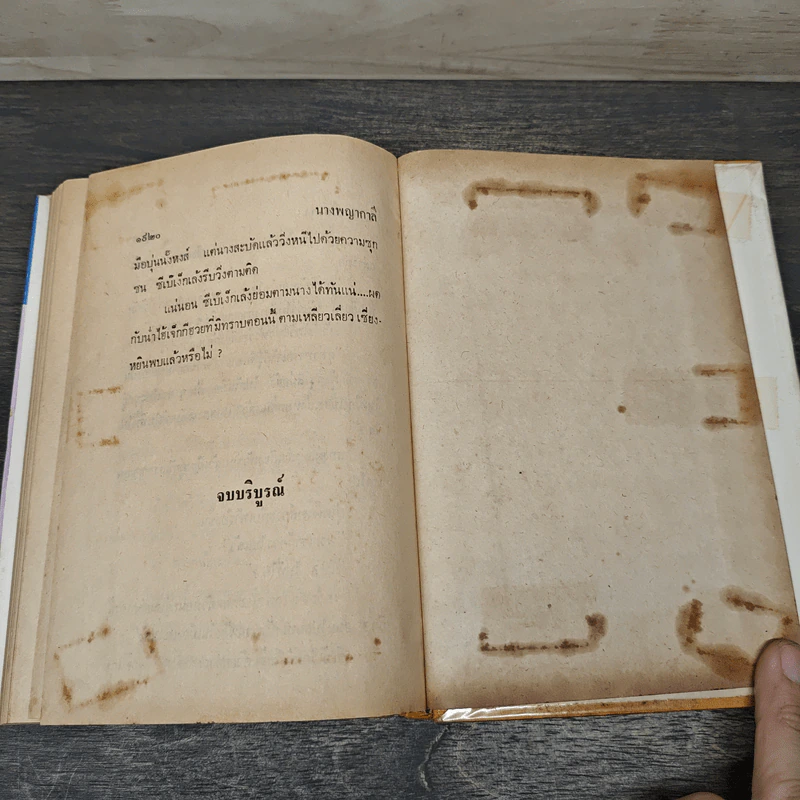 นางพญากาลี
๑๙๒๐
มือบุ่นนั้งหงส์ แต่นางสะบัดแล้ววิ่งหนีไปด้วยความซุก
ซน ซีเบ๊เง็กเล้งรีบวิ่งตามติด
แน่นอน ซีเบ๊เง็กเล้งย่อมตามนางได้ทันแน่....ผด
กับน่ำไฮ้เจ็กกีฮวยที่มิทราบตอนนี้ ตามเหลียวเลี่ยว เซี่ยง-
หยินพบแล้วหรือไม่ ?
จบบริบูรณ์